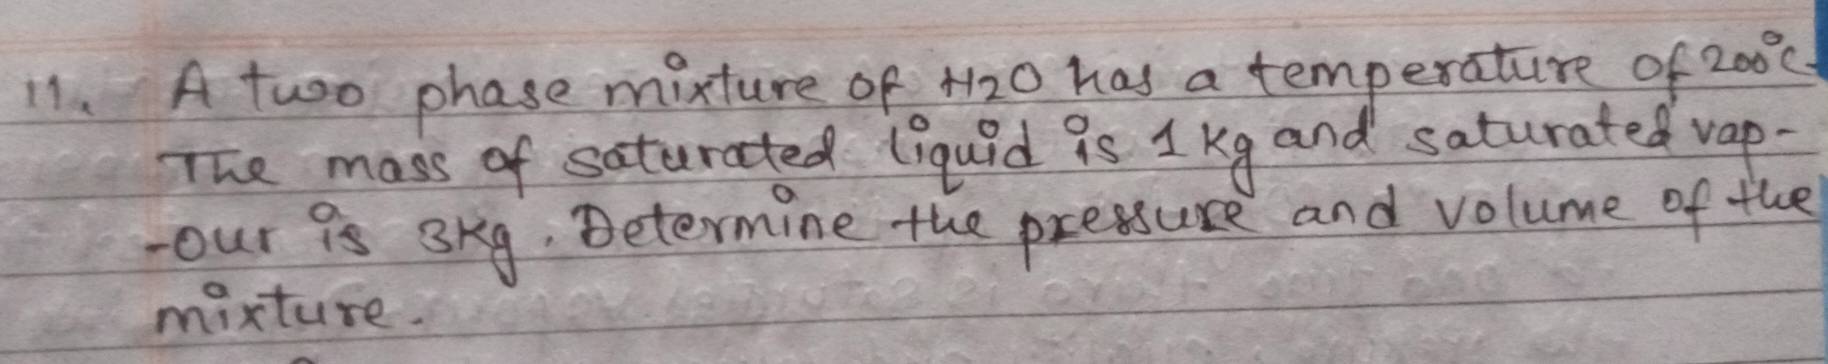 11. A two phase mixture of H2O has a temperature of 200°C.
The mass of saturated liquid is 1 kg and saturated vap-
-our is 3kg. Determine the pressure and volume of the
mixture.